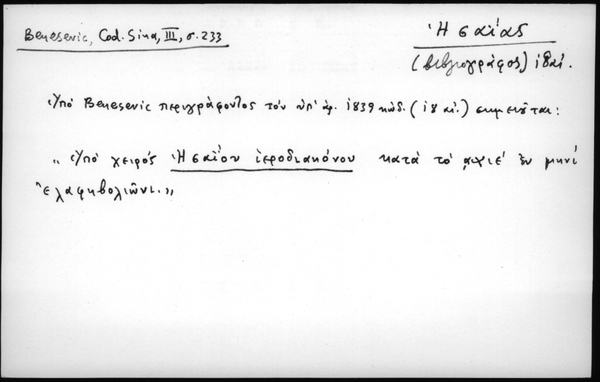 Benesevic, Cod. Sina, III, σ. 233
Ἡσαΐας
(βιβλιογράφος) ι8 αἰ.
Ὑπό Benesevic περιγράφοντος τόν ὑπ' ἀρ. 1839 κώδ. (18 αἰ.) σημειοῦται:
"Ὑπό χειρός Ἡσαΐου ἱεροδιακόνου κατά τό ͵αψιέ ἐν μηνί
ἐλαφηβολιῶνι."